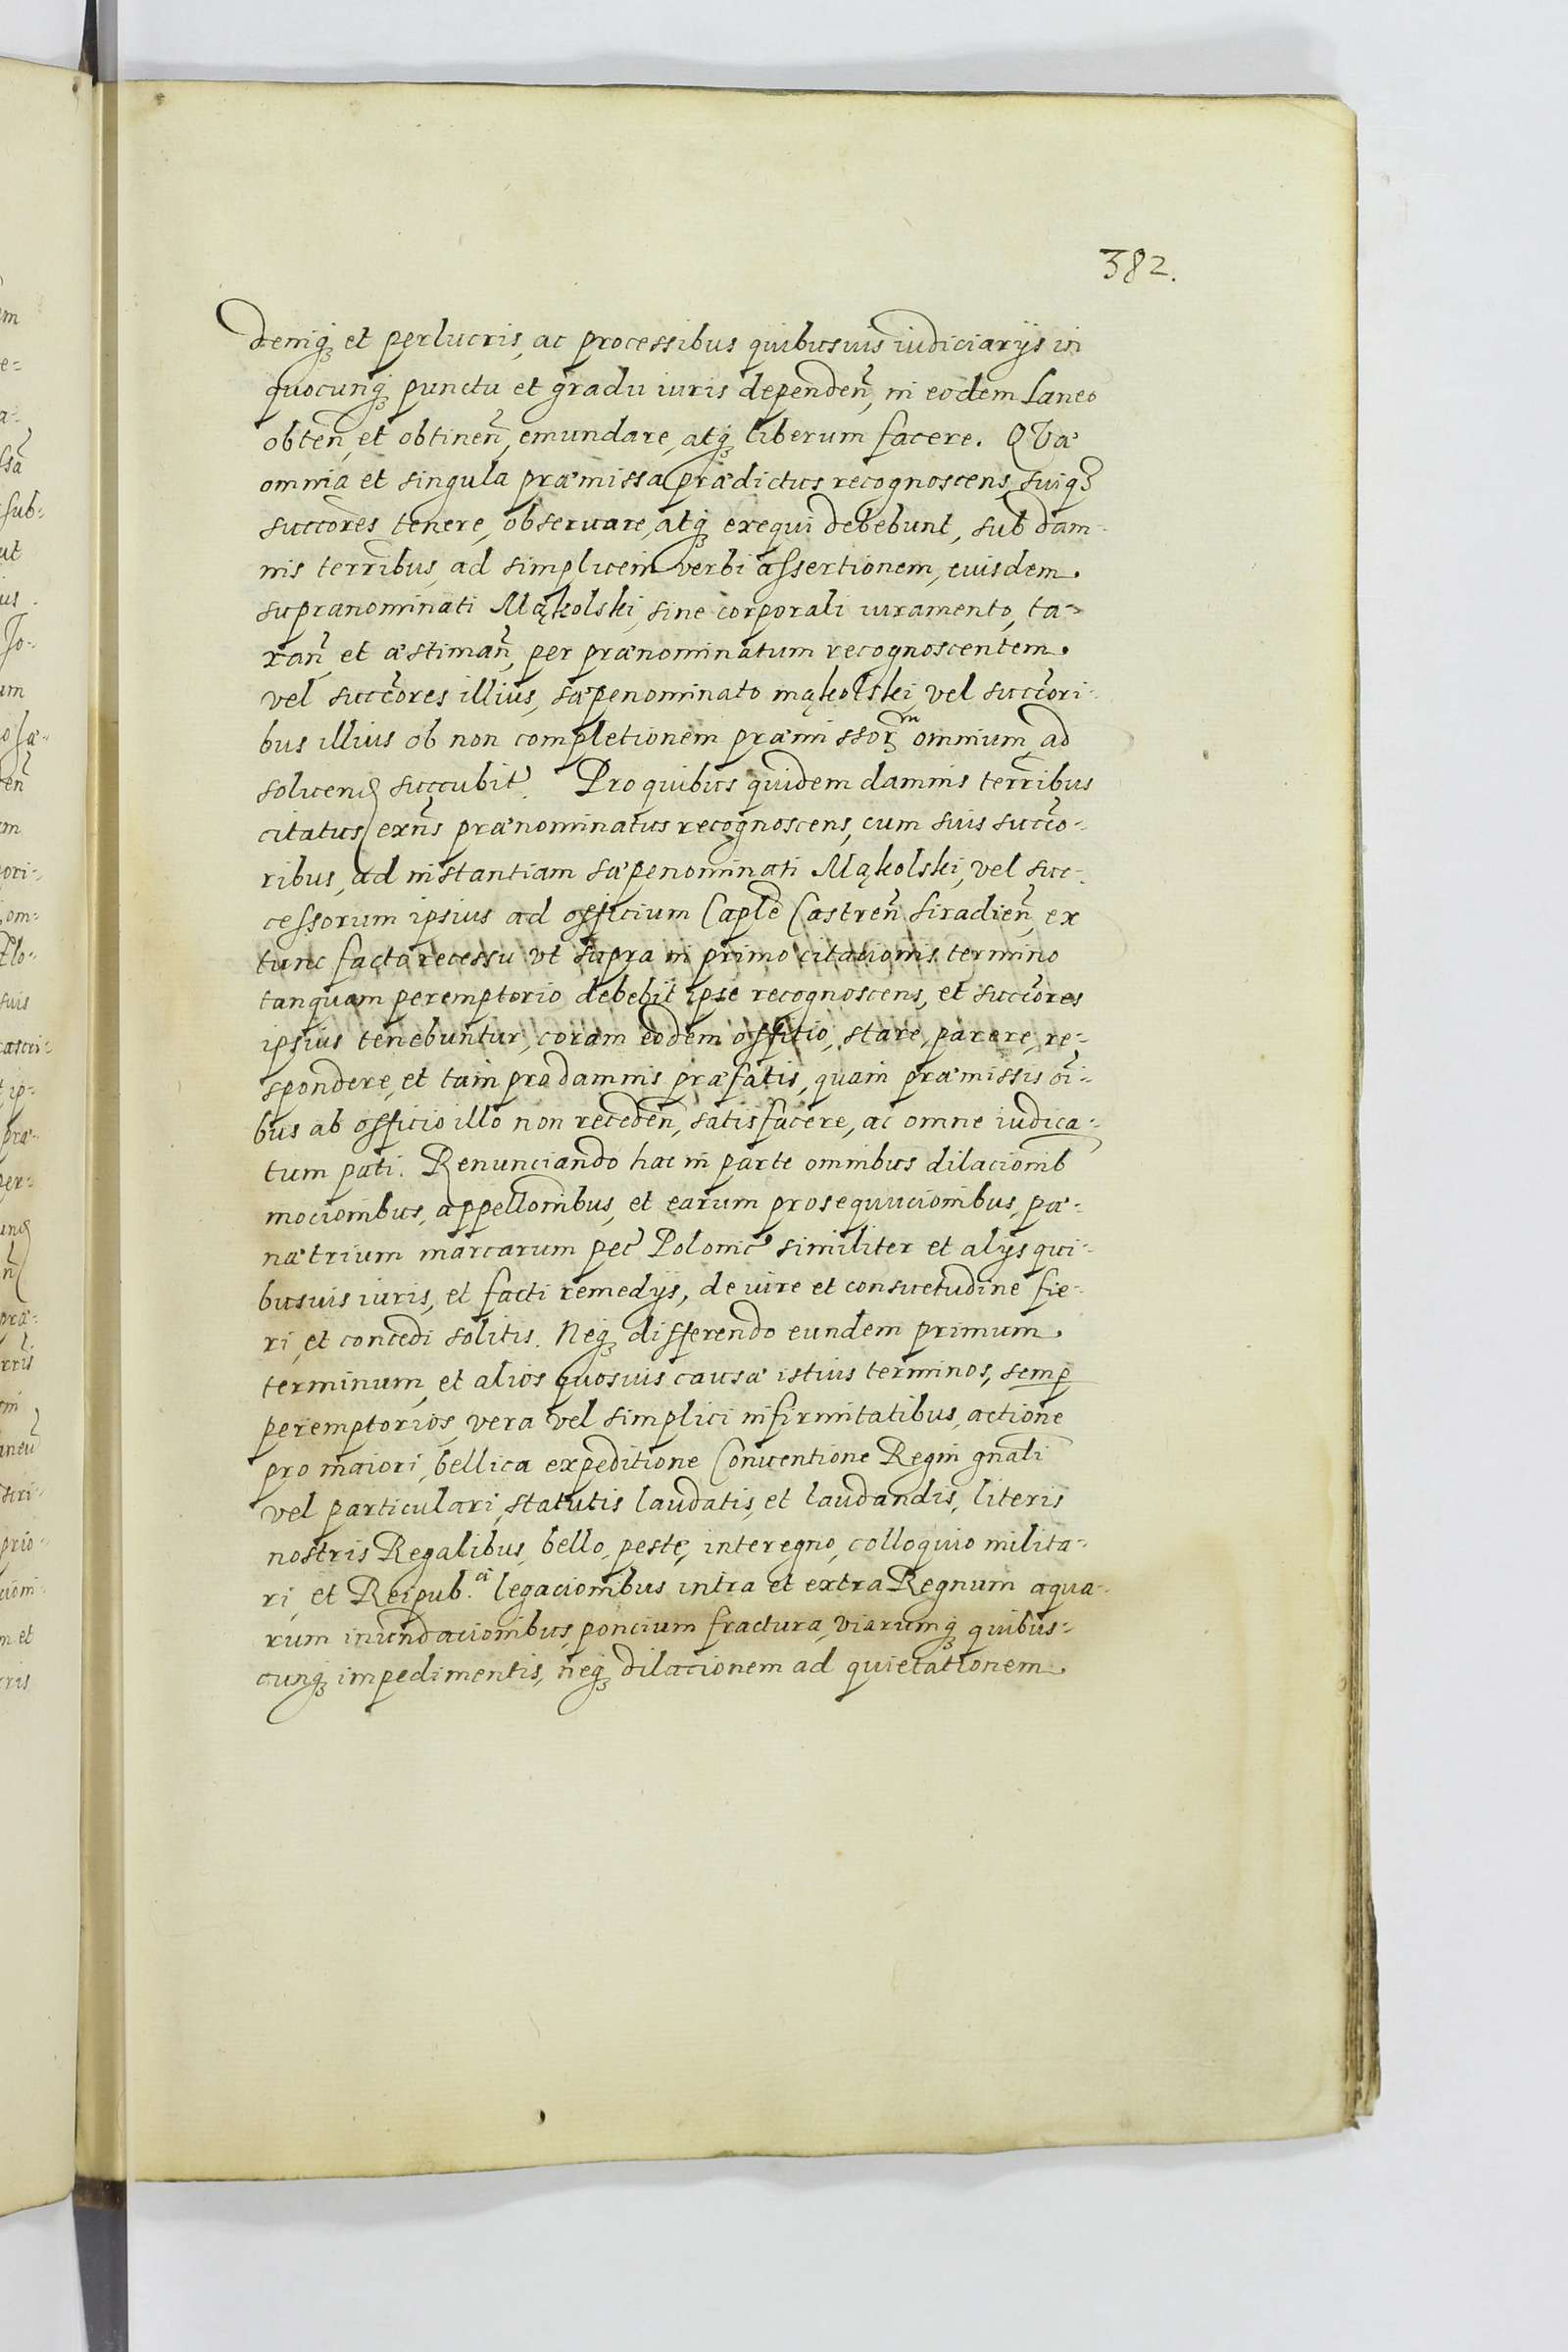 382.
deniq₃ et perlucris, ac processibus quibusuis iudiciarijs in
quocunq₃ punctu et gradu iuris dependeñ, in eodem Laneo
obteñ, et obtineñ, emundare, atq₃ liberum facere. QVæ
omnia et singula præmissa prædictus recognoscens, suiq₃
succõres tenere, obseruare, atq₃ exequi debebunt, sub dam-
nis terrĩbus, ad simplicem verbi assertionem, euisdem.
supranominati Mąkolski, sine corporali iuramento, ta-
xañ et æstimañ, per prænominatum recognoscentem.
vel succõres illius, sæpenominato mąkolski, vel succõri-
bus illius ob non completionem præmissorᷓ omnium, ad
soluend succubit̃. Pro quibus quidem damnis terrĩbus
citatus exñs prænominatus recognoscens, cum suis succõ-
ribus, ad instantiam sæpenominati Mąkolski, vel suc-
cessorum ipsius ad officium Caplẽ Castreñ Siradieñ, ex
tunc facto recessu vt supra in primo citationis termino
tanquam peremptorio debebit ipse recognoscens, et succõres
ipsius tenebuntur, coram eodem officio, stare, parere, re-
spondere, et tam pro damnis præfatis, quam præmissis oĩ-
bus ab officio illo non recedeñ, satisfacere, ac omne iudica-
tum pati. Renunciando hac in parte omnibus dilacionib
mocionibus, appellonibus, et earum prosequucionibus, pæ-
næ trium marcarum pec̃ Polonic̃ similiter et alijs qui-
busuis iuris, et facti remedijs, de iure et consuetudine fie-
ri, et concedi solitis. Neq₃ differendo eundem primum.
terminum, et alios quosuis causæ istius terminos, semꝑ
peremptorios, vera vel simplici infirmitatibus, actione
pro maiori, bellica expeditione Conuentione Regni gñali
vel particulari, statutis laudatis, et laudandis, literis
nostris Regalibus, bello, peste, interegno, colloquio milita-
ri, et Reipub.ci legacionibus intra et extra Regnum aqua-
rum inundacionibus, poncium fractura, viarumq₃ quibus-
cunq₃ impedimentis, neq₃ dilacionem ad quietationem.